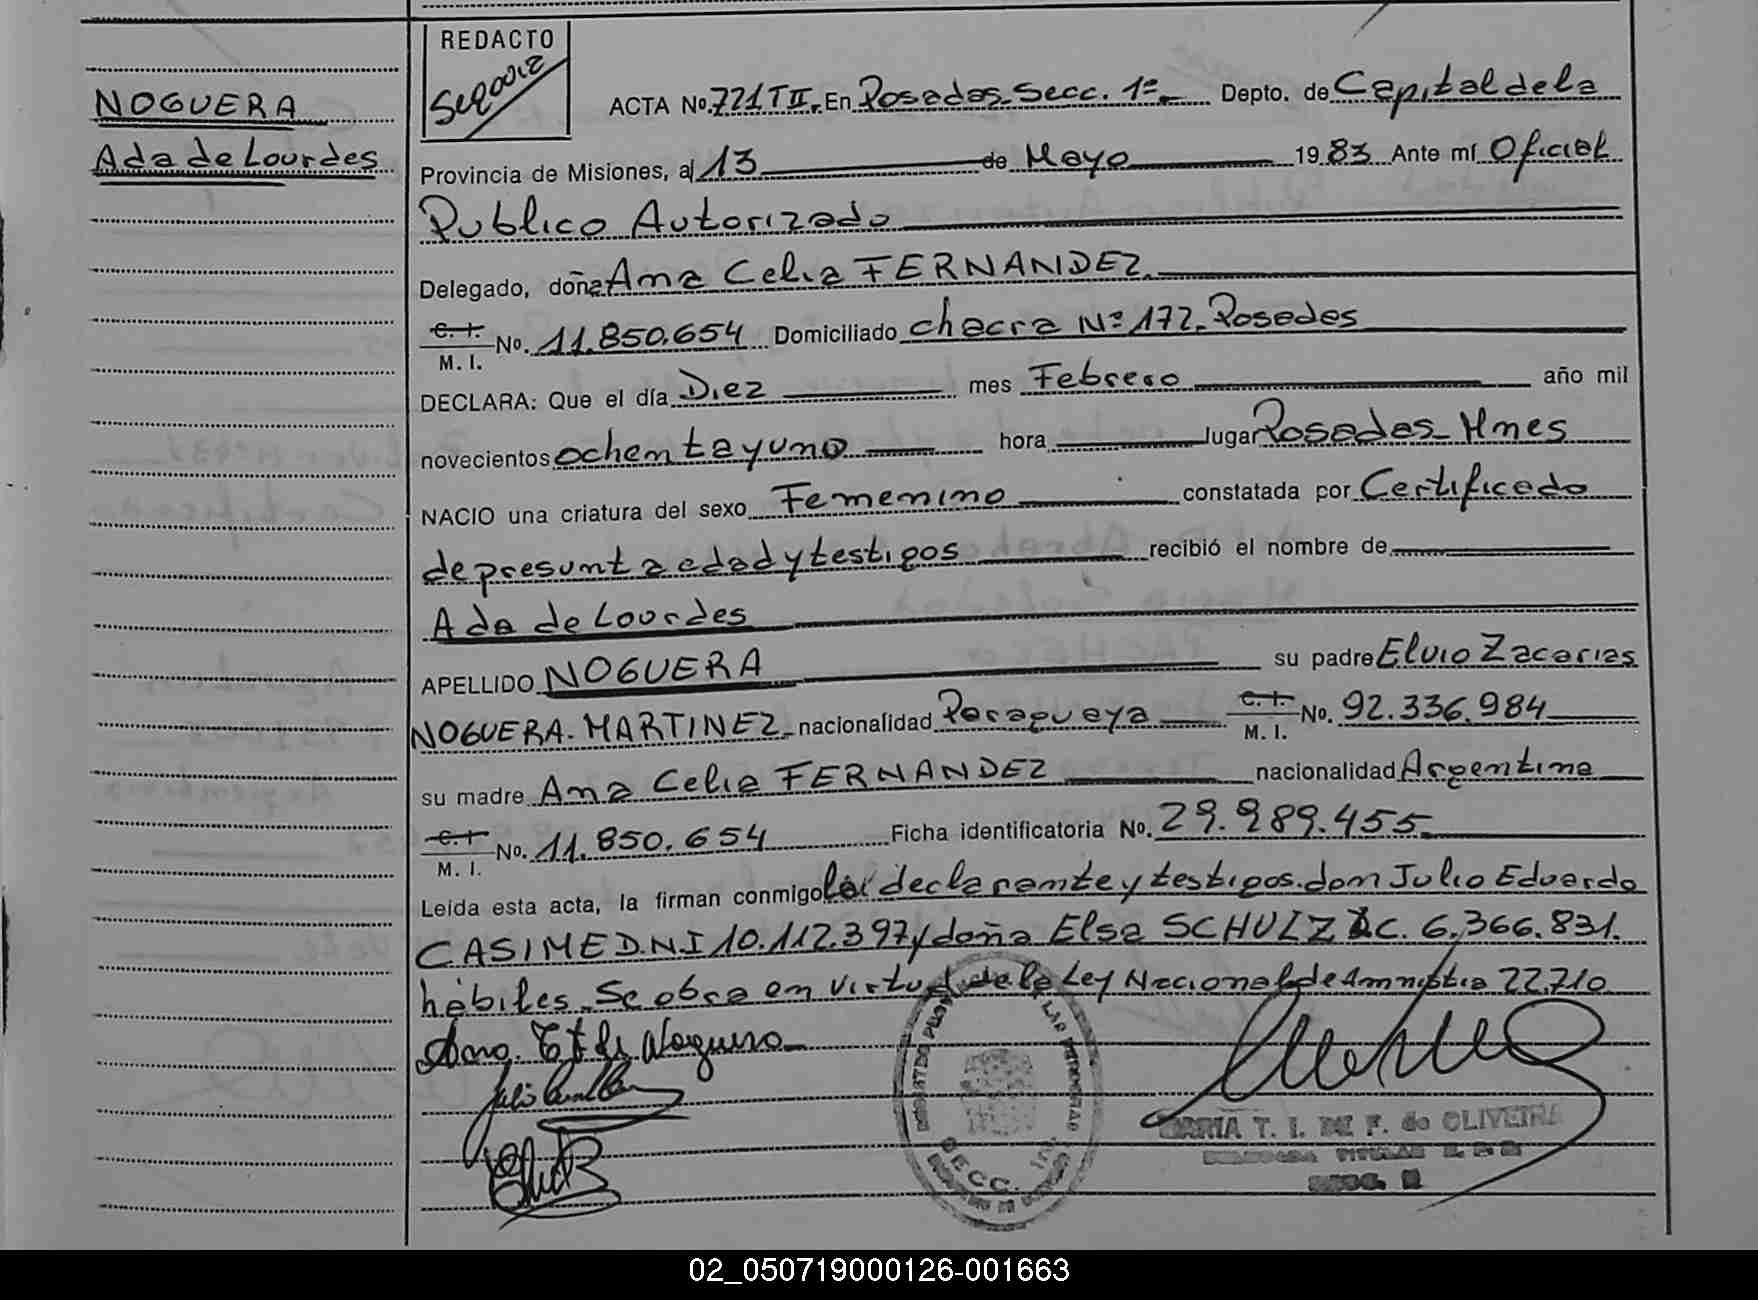 NOGUERA
Ada de Lourdes
REDACTO
ACTA No. 721 T II. En Posadas. Secc. 1ª Depto. de Capital de la
Provincia de Misiones, a 13 de Mayo 19 83 Ante mí Oficial
Publico Autorizado
Delegado, doña Ana Celia FERNANDEZ.
C. I. M. I. No. 11.850.654 Domiciliado chacra Nº 172. Posadas
DECLARA: Que el día Diez mes Febrero año mil
novecientos ochenta y uno hora lugar Posadas- Mnes
NACIO una criatura del sexo Femenino constatada por Certificado
de presunta edad y testigos recibió el nombre de
Ada de Lourdes
APELLIDO NOGUERA su padre Elvio Zacarias
NOGUERA. MARTINEZ nacionalidad Paraguaya C. I. M. I. No. 92.336.984
su madre Ana Celia FERNANDEZ nacionalidad Argentina
C. I. M. I. No. 11.850.654 Ficha identificatoria No. 29.989.455
Leída esta acta, la firman conmigo la declarante y testigos. don Julio Eduardo
CASIME D.N.I 10.112.397 y doña Elsa SCHULZ L.C. 6.366.831.
hábiles. Se obra en virtud de la Ley Nacional de Amnistia 22.710
Ana. de Noguera
MARIA T. I. DE F. de OLIVEIRA
SECC.
02_050719000126-001663